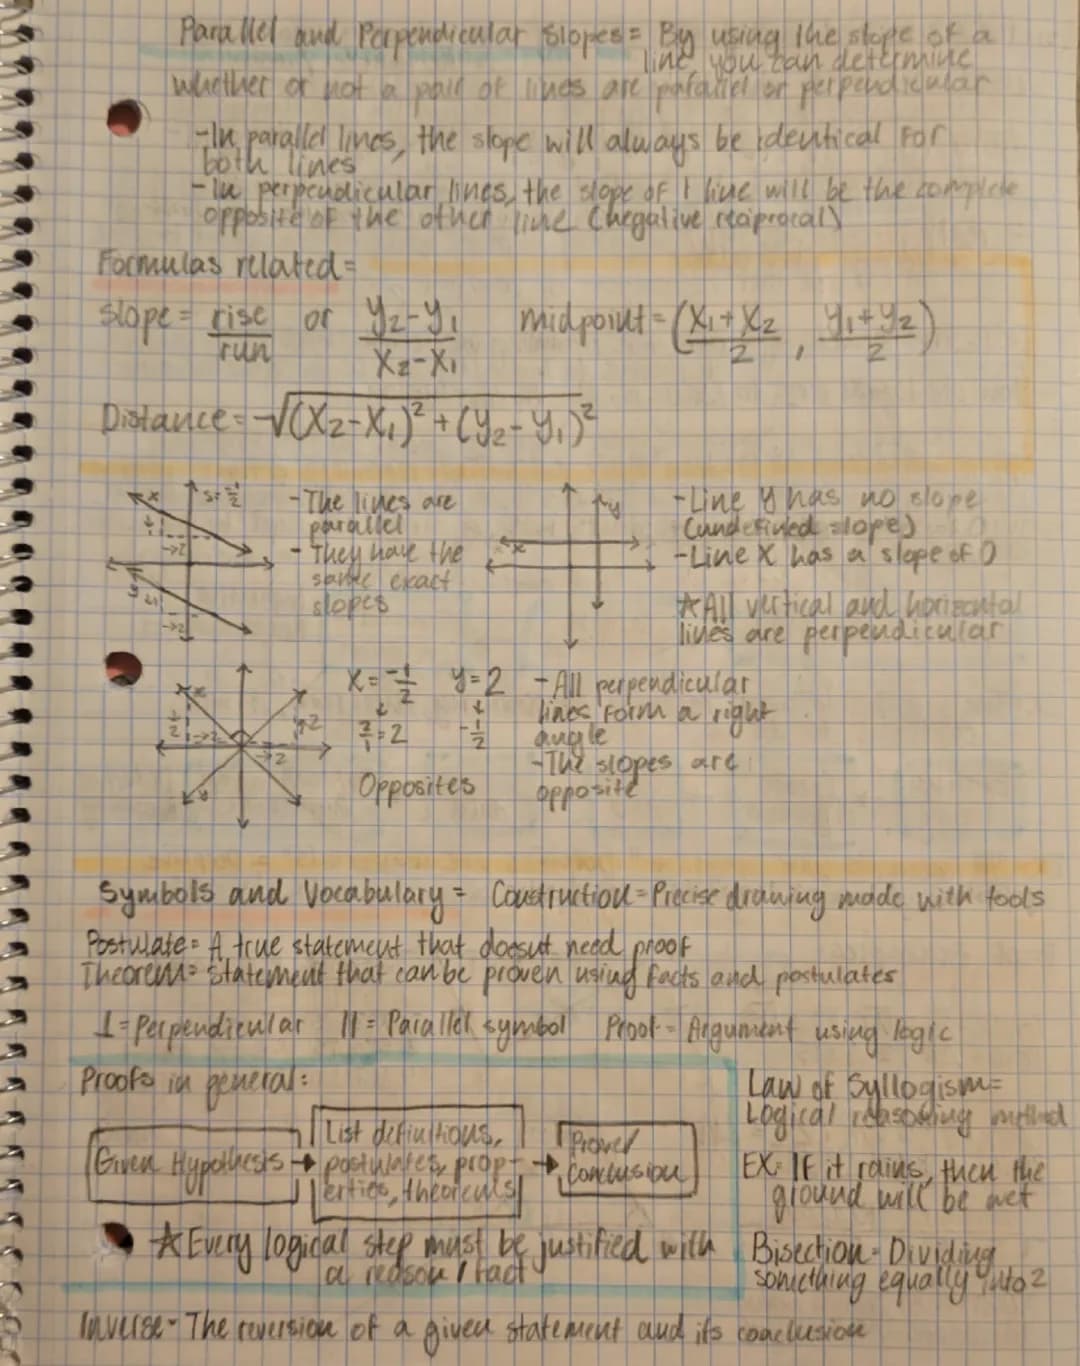 Parallel and Perpendicular Slopes = By using the slope of a
line you can determine
whether or not a pair of lines are parallel or perpendicular
-In parallel lines, the slope will always be identical for
both lines
-In perpendicular lines, the slope of 1 line will be the complete
opposite of the other line (negative reciprocal)
Formulas related=
slope = rise/run or y₂-y₁/x₂-x₁ midpoint = (x₁+x₂/2, y₁+y₂/2)
Distance = √(x₂-x₁)² + (y₂-y₁)²
x
s= -1/2
→2
y
↓1
→2
- The lines are
parallel
- They have the
same exact
slopes
y
x
-Line y has no slope
(undefined slope)
-Line x has a slope of 0
☆All vertical and horizontal
lines are perpendicular
x
→2
↑2
→2
y
x = -1/2 y = 2
↓ ↓
2/1 = 2 -1/2
Opposites
-All perpendicular
lines form a right
angle
-The slopes are
opposite
Symbols and Vocabulary = Construction = Precise drawing made with tools
Postulate = A true statement that doesnt need proof
Theorem = Statement that can be proven using facts and postulates
⊥ = Perpendicular || = Parallel symbol Proof = Argument using logic
Proofs in general:
Given Hypothesis →
List definitions,
postulates, prop-
erties, theorems
→
Prove/
conclusion
☆Every logical step must be justified with
a reason/fact
Law of Syllogism=
Logical reasoning method
EX: If it rains, then the
ground will be wet
Bisection = Dividing
something equally into 2
Inverse - The reversion of a given statement and its conclusion